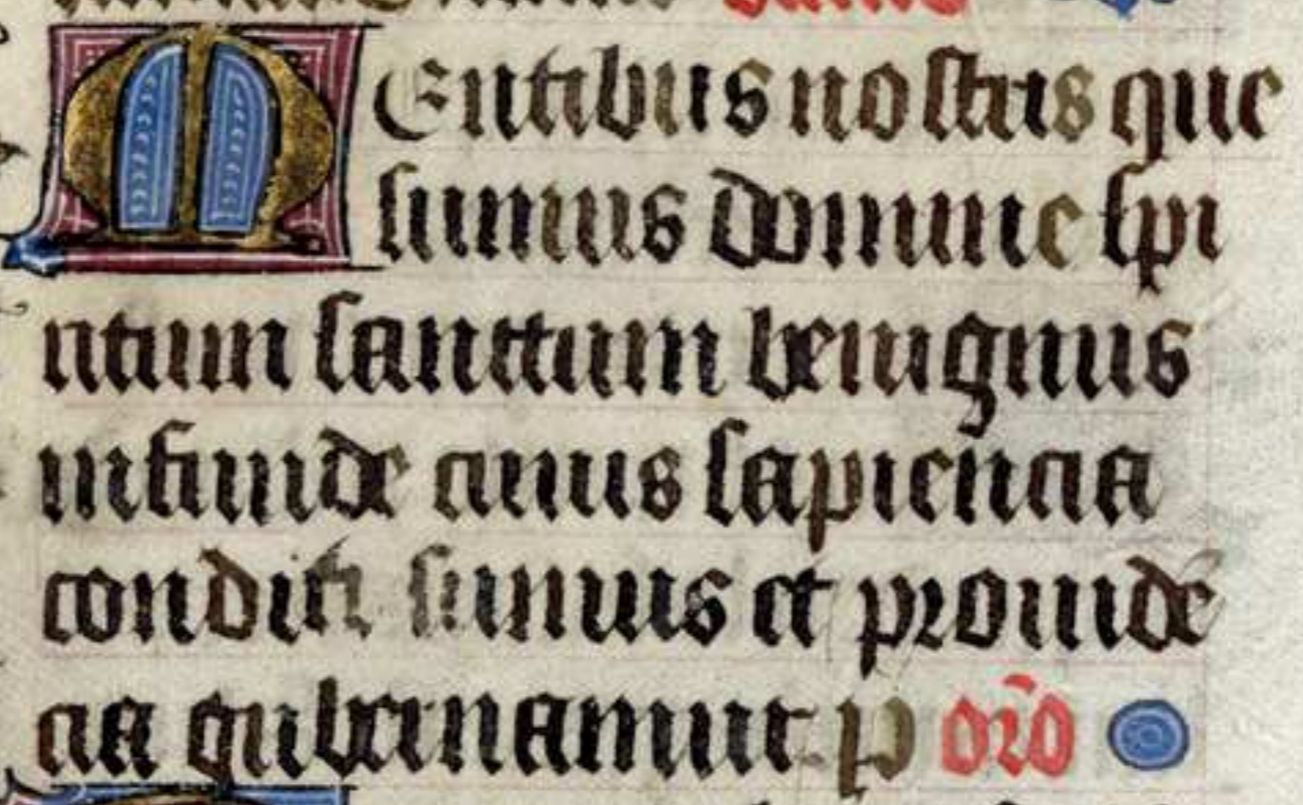 Mentibus nostris que
sumus domine spi
ritum sanctum benignus
infunde cuius sapiencia
conditi sumus et prouide
cia gubernamur p orõ